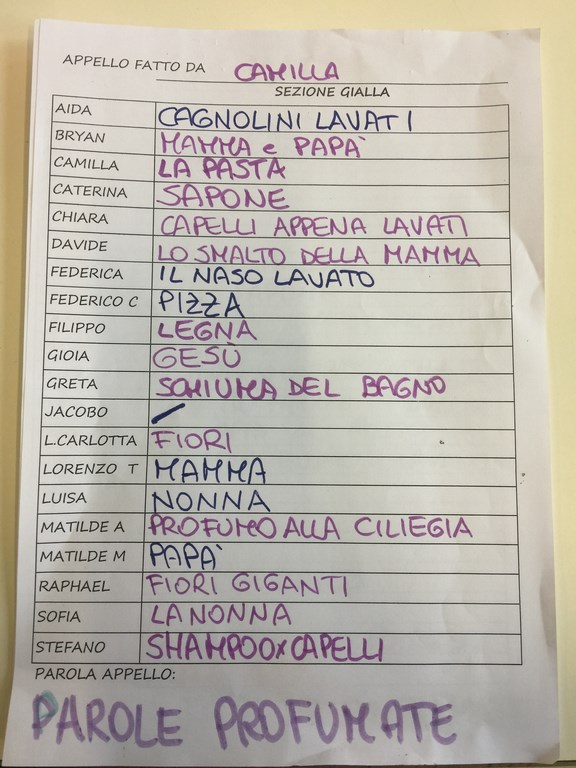 APPELLO FATTO DA CAMILLA
SEZIONE GIALLA
AIDA CAGNOLINI LAVATI
BRYAN MAMMA e PAPÀ
CAMILLA LA PASTA
CATERINA SAPONE
CHIARA CAPELLI APPENA LAVATI
DAVIDE LO SMALTO DELLA MAMMA
FEDERICA IL NASO LAVATO
FEDERICO C PIZZA
FILIPPO LEGNA
GIOIA GESÙ
GRETA SCHIUMA DEL BAGNO
JACOBO /
L.CARLOTTA FIORI
LORENZO T MAMMA
LUISA NONNA
MATILDE A PROFUMO ALLA CILIEGIA
MATILDE M PAPÀ
RAPHAEL FIORI GIGANTI
SOFIA LA NONNA
STEFANO SHAMPOO x CAPELLI
PAROLA APPELLO:
PAROLE PROFUMATE